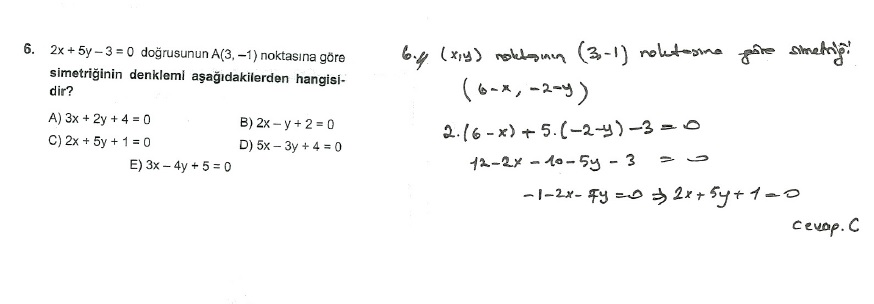 6. 2x + 5y – 3 = 0 doğrusunun A(3, –1) noktasına göre
simetriğinin denklemi aşağıdakilerden hangisi-
dir?
A) 3x + 2y + 4 = 0
B) 2x – y + 2 = 0
C) 2x + 5y + 1 = 0
D) 5x – 3y + 4 = 0
E) 3x – 4y + 5 = 0
6.) (x,y) noktasının (3,-1) noktasına göre simetriği:
(6-x, -2-y)
2.(6-x) + 5.(-2-y) -3 = 0
12-2x - 10-5y - 3 = 0
-1-2x-5y=0 ⇒ 2x + 5y + 1 = 0
Cevap. C